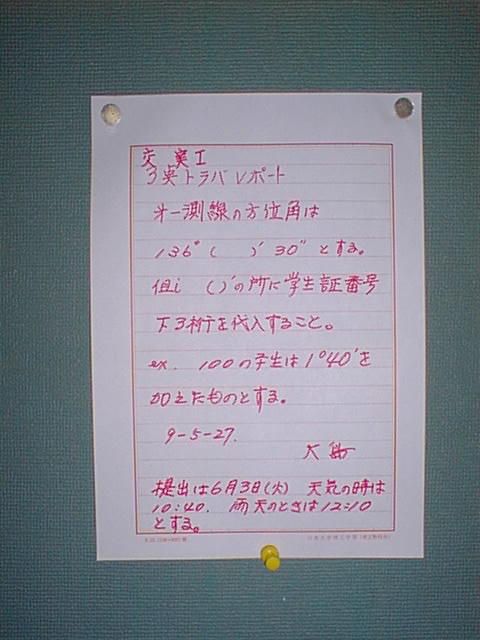 交 実 I
3実トラバレポート
オ一測線の方位角は
136° ( )′ 30″ とする。
但i ( )′の所に学生証番号
下3桁を代入すること。
ex. 100の学生は1°40′を
加えたものとする。
9-5-27.
提出は6月3日(火) 天気の時は
10:40. 雨天のときは12:10
とする。